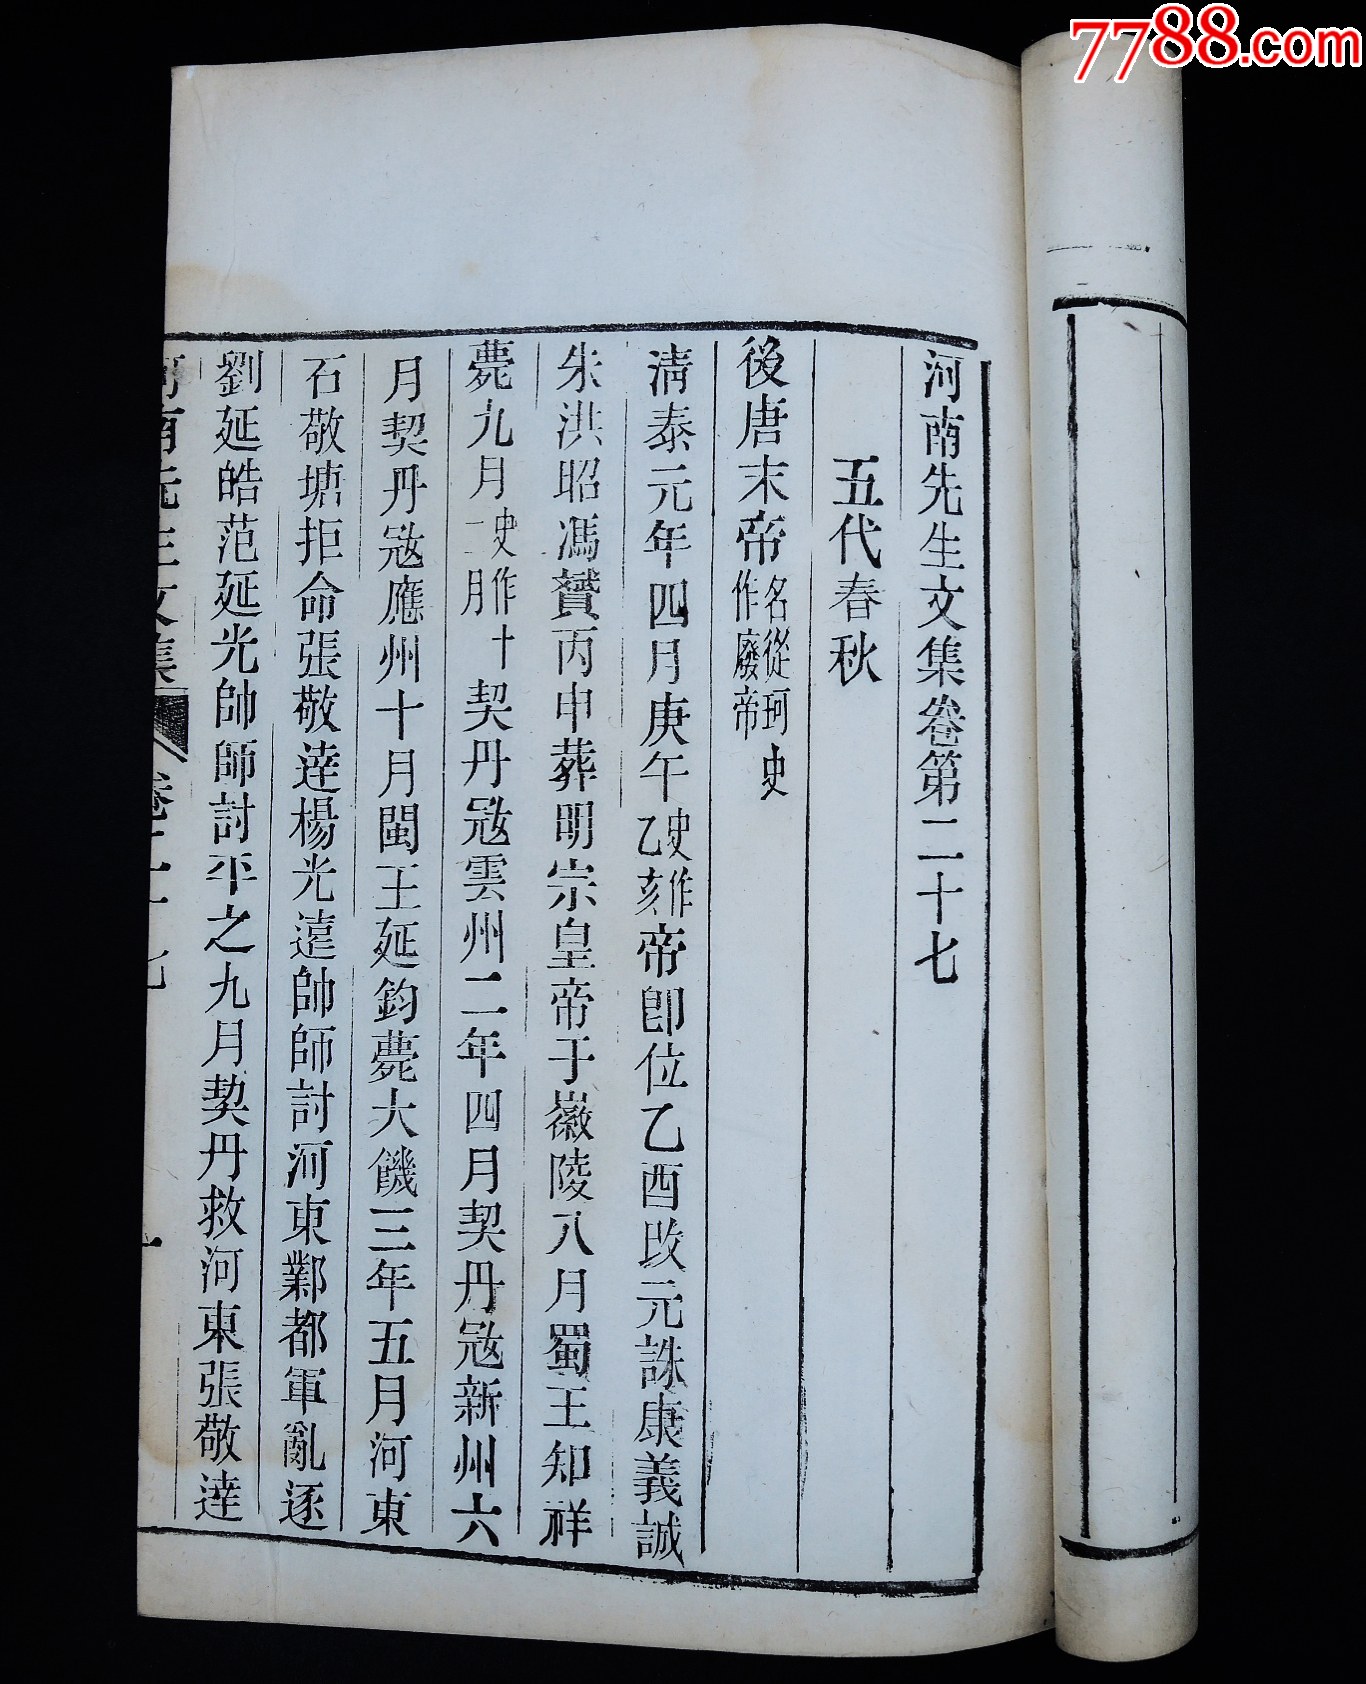 7788.com
河南先生文集卷第二十七
五代春秋
後唐末帝名從珂史作廢帝
清泰元年四月庚午史作乙亥帝卽位乙酉改元誅康義誠
朱洪昭馮贇丙申葬明宗皇帝于徽陵八月蜀王知祥
薨九月史作十二月契丹寇雲州二年四月契丹寇新州六
月契丹寇應州十月閩王延鈞薨大饑三年五月河東
石敬塘拒命張敬達楊光遠帥師討河東鄴都軍亂逐
劉延皓范延光帥師討平之九月契丹救河東張敬達
河南先生文集 卷二十七 一